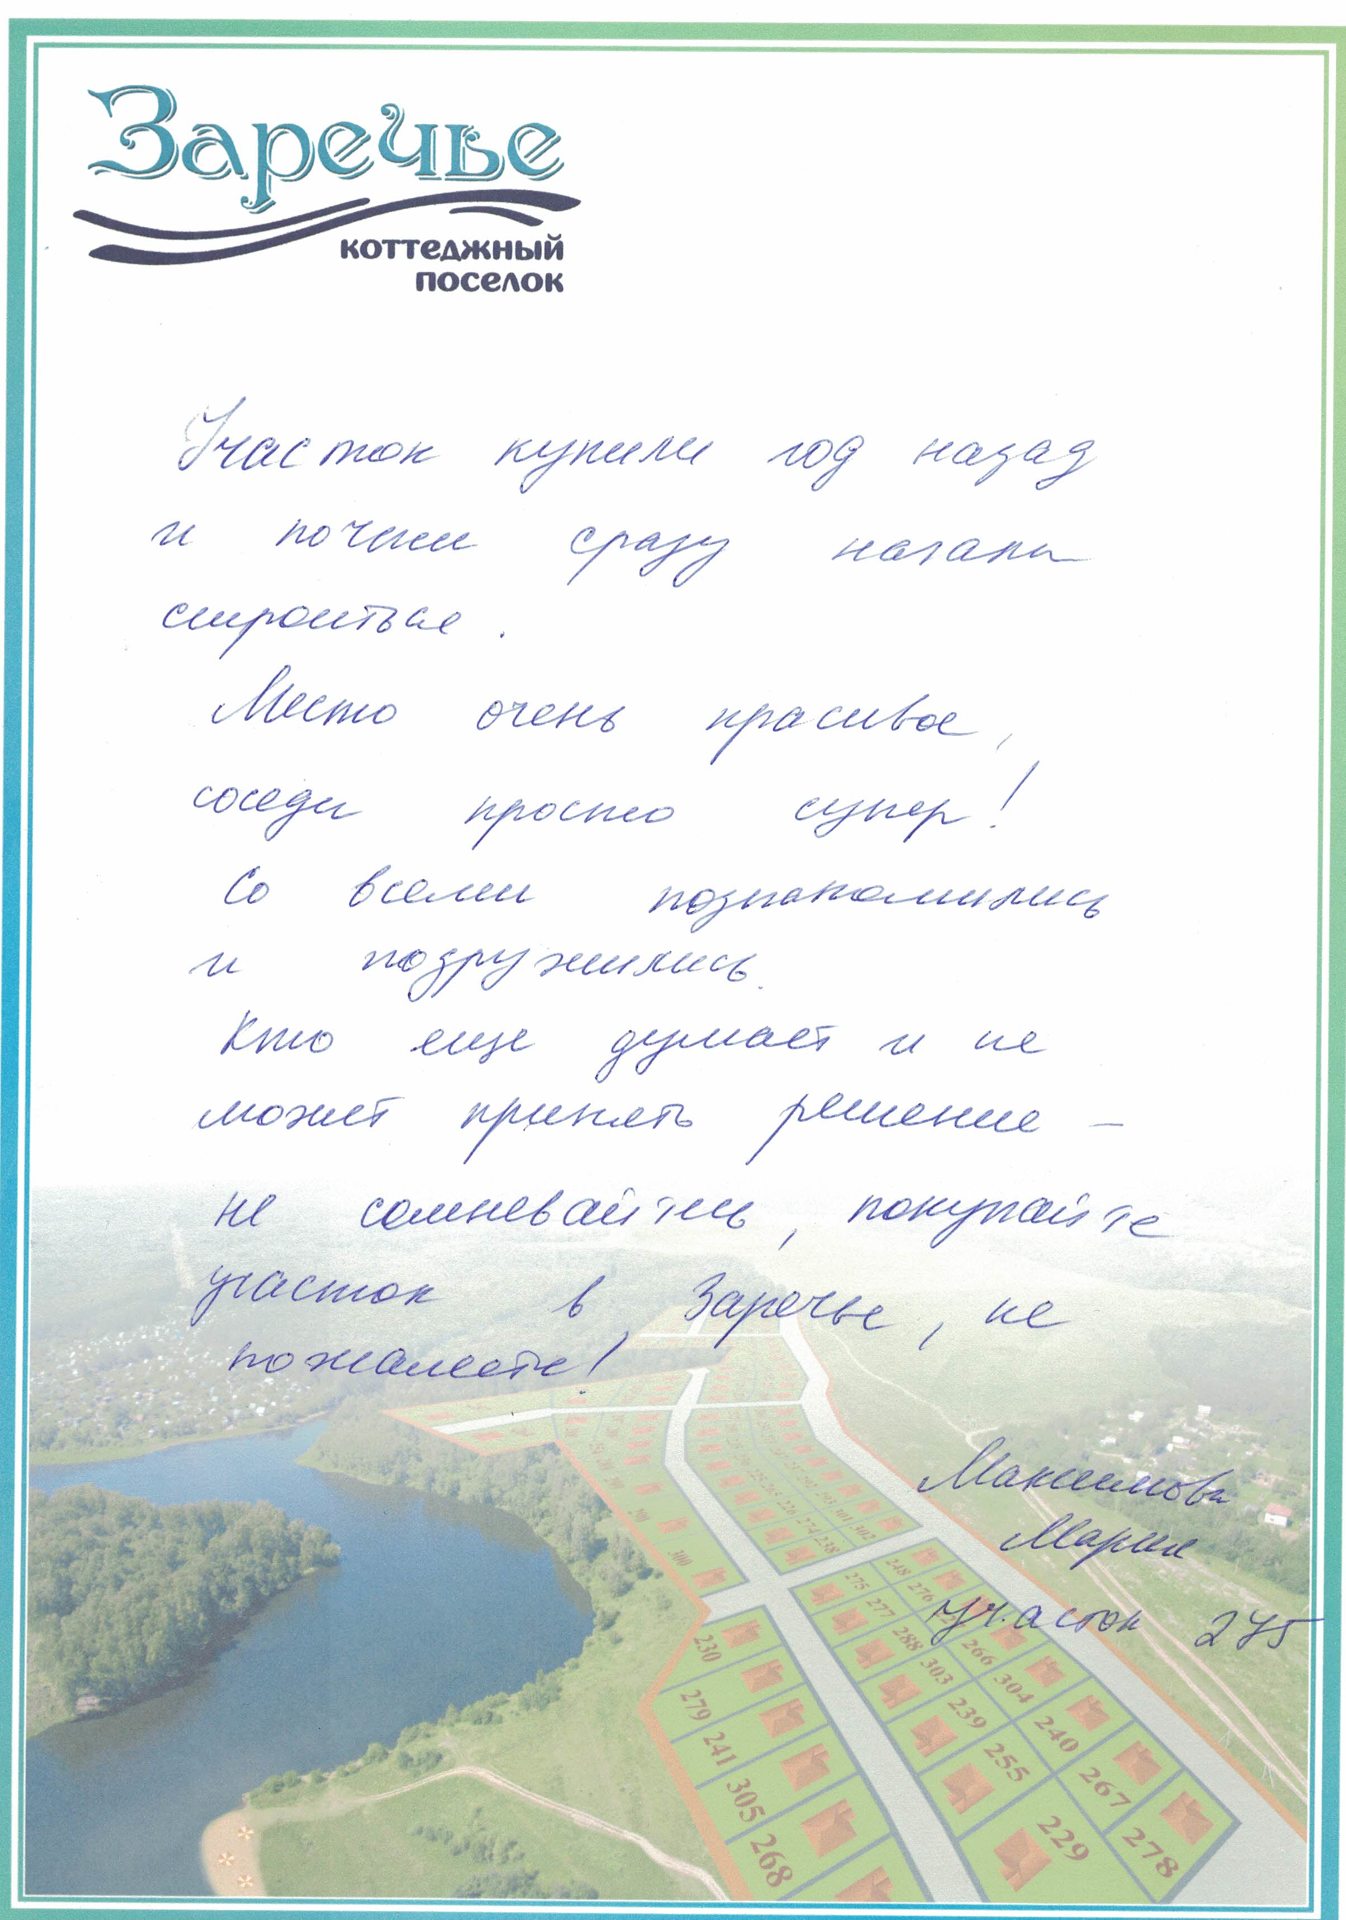 Заречье
коттеджный
поселок
Участок купили год назад
и почти сразу начали
строиться.
Место очень красивое,
соседи просто супер!
Со всеми познакомились
и подружились.
Кто еще думает и не
может принять решение –
не сомневайтесь, покупайте
участок в Заречье, не
пожалеете!
Максимова
Мария
Участок 275
302
301
226
274
238
300
248
276
275
277
288
266
303
304
230
239
240
279
255
267
241
305
229
278
268